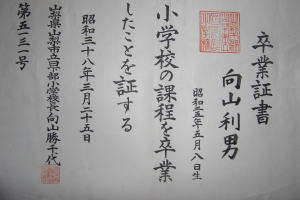 卒業証書
向山利男
昭和二五年五月八日生
小学校の課程を卒業
したことを証する
昭和三十八年三月二十五日
山梨県山梨市立日下部小学校長 向山勝千代
第五一三一号